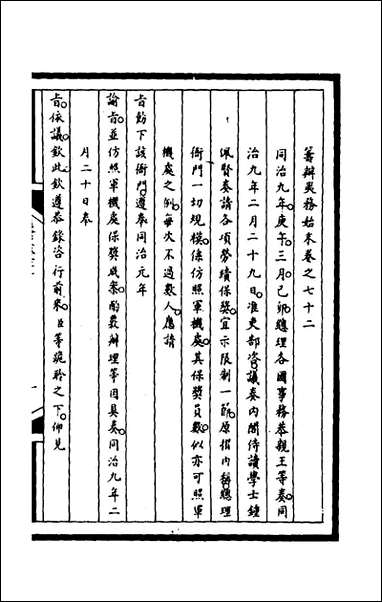 籌辦夷務始末卷之七十二
同治九年庚午三月己卯總理各國事務恭親王等奏同
治九年二月二十九日准吏部咨議奏內閣侍讀學士鐘
佩賢奏請各項勞績保獎宜示限制一節原摺內稱總理
衙門一切規模係仿照軍機處其保獎員數似亦可照軍
機處之例每次不過數人應請
旨飭下該衙門遵奉同治元年
諭旨並仿照軍機處保獎成案酌覈辦理等因具奏同治九年二
月二十日奉
旨依議欽此欽遵恭錄咨行前來臣等跪聆之下仰見